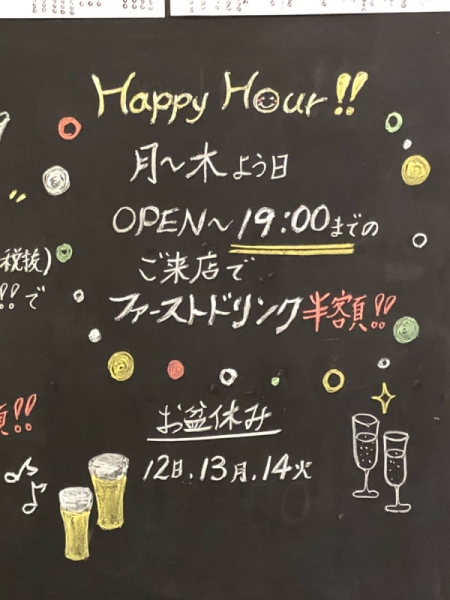 Happy Hour!!
月〜木よう日
OPEN〜19:00までの
税抜)
ご来店で
!!で
ファーストドリンク半額!!
額!!
お盆休み
12日、13月、14火